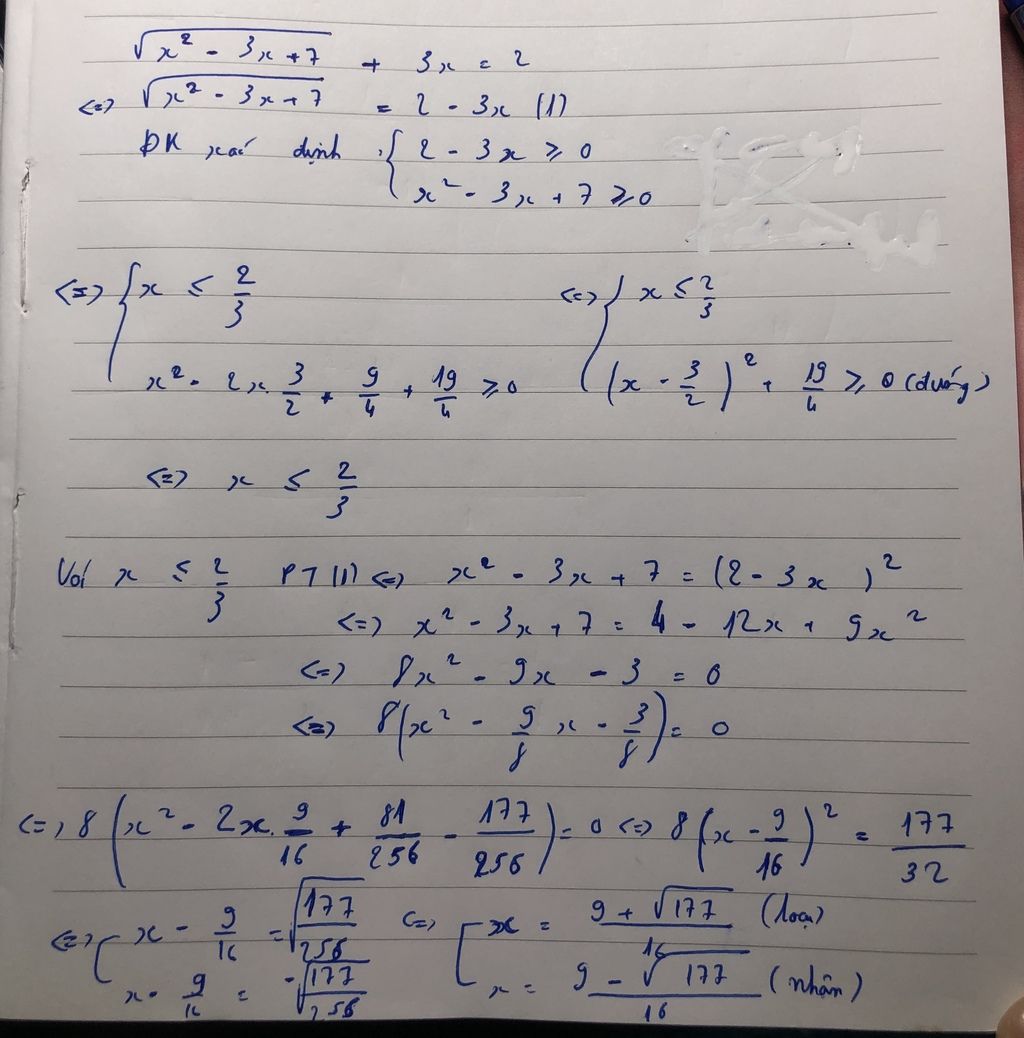 √(x² - 3x + 7) + 3x = 2
<=> √(x² - 3x + 7) = 2 - 3x (1)
ĐK xác định { 2 - 3x ≥ 0
x² - 3x + 7 ≥ 0
<=> { x ≤ 2/3 <=> { x ≤ 2/3
x² - 2x 3/2 + 9/4 + 19/4 ≥ 0 (x - 3/2)² + 19/4 ≥ 0 (đướng)
<=> x ≤ 2/3
Với x ≤ 2/3 PT (1) <=> x² - 3x + 7 = (2 - 3x)²
<=> x² - 3x + 7 = 4 - 12x + 9x²
<=> 8x² - 9x - 3 = 0
<=> 8(x² - 9/8 x - 3/8) = 0
<=> 8(x² - 2x. 9/16 + 81/256 - 177/256) = 0 <=> 8(x - 9/16)² = 177/32
<=> [ x - 9/16 = √(177/256) <=> [ x = (9 + √177)/16 (loại)
x - 9/16 = -√(177/256) x = (9 - √177)/16 (nhân)